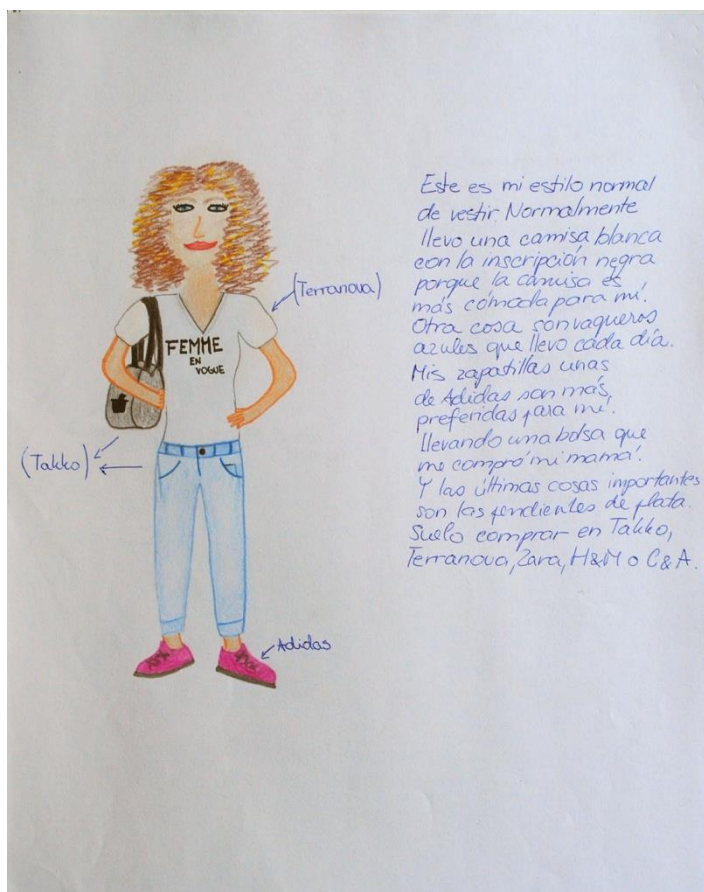 (Terranova)
FEMME
EN
VOGUE
(Takko)
Adidas
Este es mi estilo normal
de vestir. Normalmente
llevo una camisa blanca
con la inscripción negra
porque la camisa es
más cómoda para mí.
Otra cosa son vaqueros
azules que llevo cada día.
Mis zapatillas unas
de Adidas son más
preferidas para mí.
llevando una bolsa que
me compró mi mamá.
Y las últimas cosas importantes
son las pendientes de plata.
Suelo comprar en Takko,
Terranova, Zara, H&M o C&A.